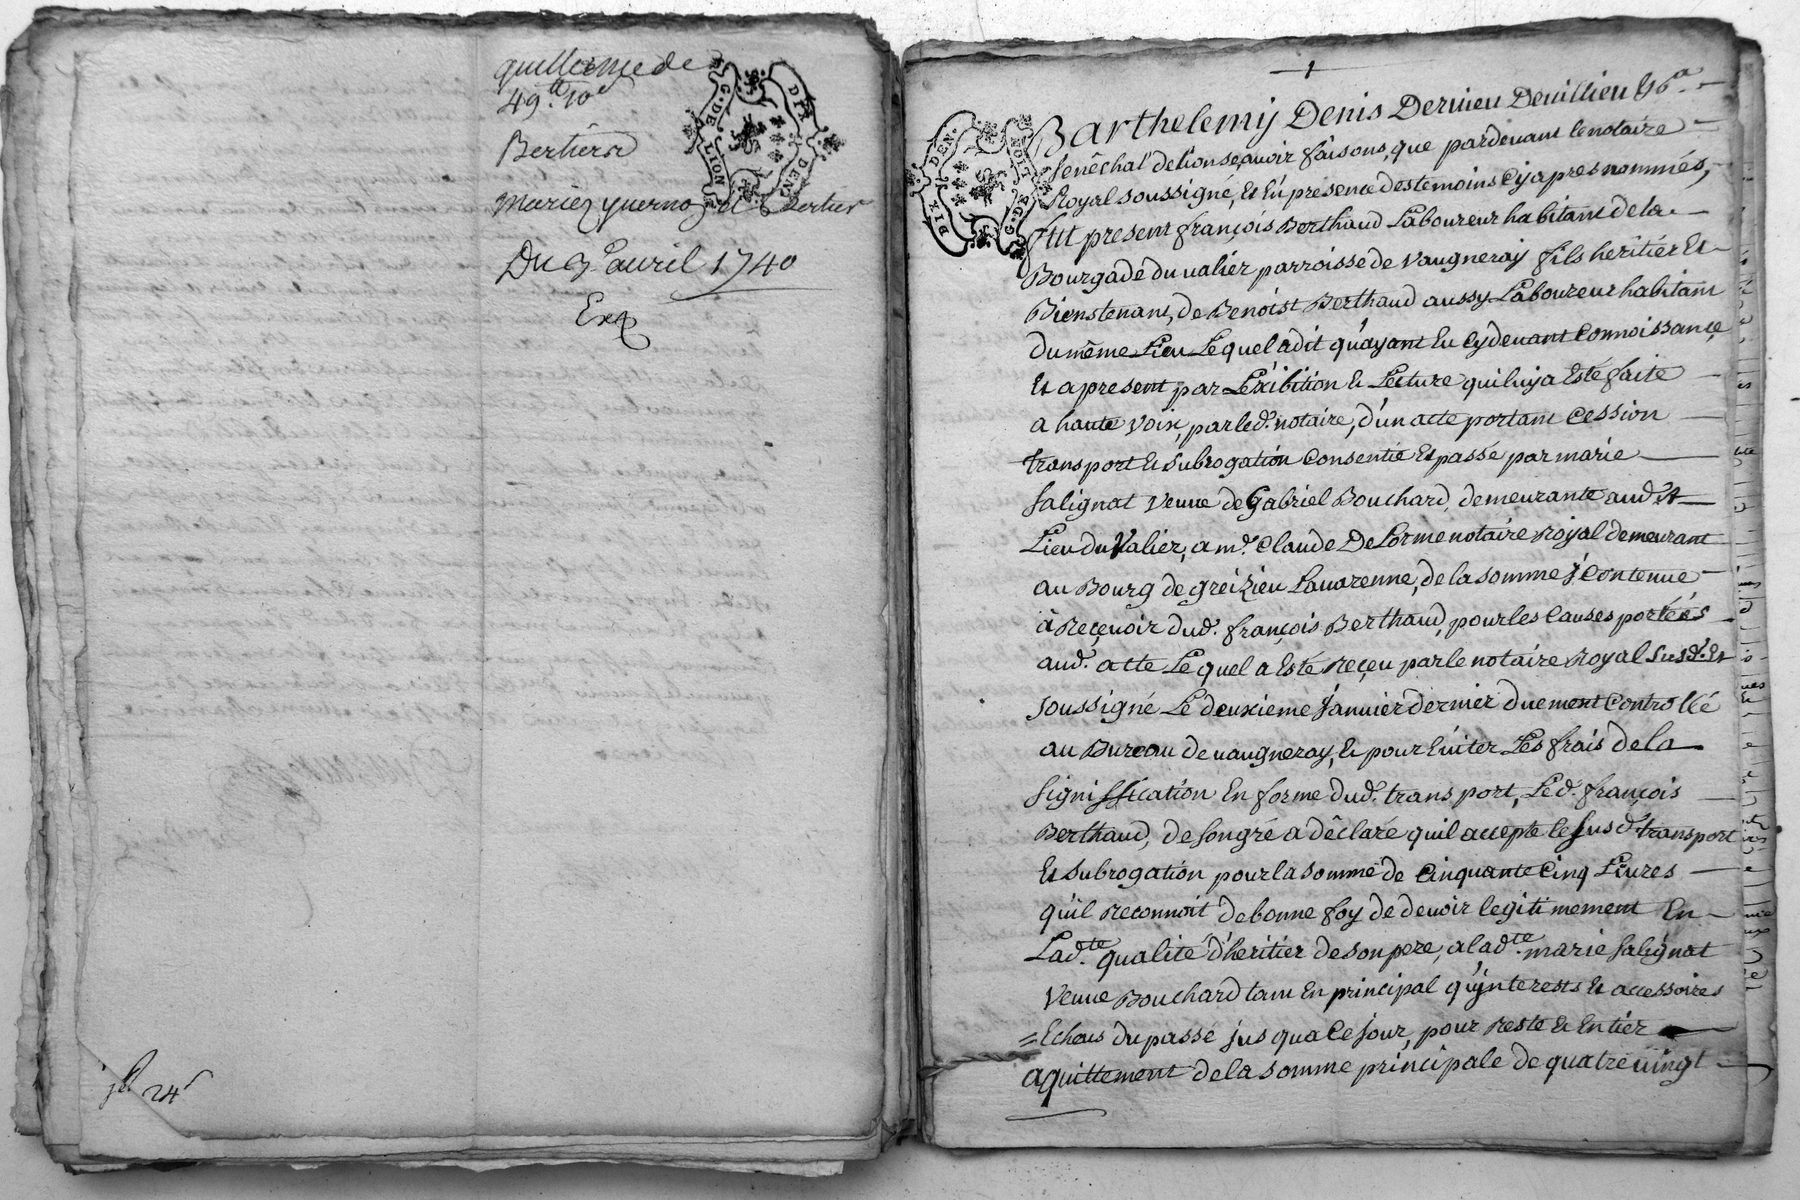 quittance de
49.tt 10.s
Bertier
Marie
Bertier
Du 9.e avril 1740
Ex
24
G. DE LION
DIX DEN.
Barthelemy Denis Dervieu Devillieu
senêchal de lion sçavoir faisons, que pardevant le notaire
Royal soussigné, et En presence des temoins cy apres nommés,
fut present françois Berthaud Laboureur habitant de la
Bourgade du valier parroisse de vaugneray fils heritier Et
Bienstenant, de Benoist Berthaud aussy Laboureur habitant
du même Lieu Lequel a dit qu'ayant Eu cydevant connoissance,
Et a present par L'exibition & Lecture qui luy a Esté faite
a haute voix, par led. notaire, d'un acte portant cession
transport & subrogation consentie Et passé par marie
salignat veuve de Gabriel Bouchard, demeurante aud.t
Lieu du Valier, a m.e Claude De Lorme notaire Royal demeurant
au Bourg de greizieu Lavarenne, de la somme y contenue
à Reçevoir dud. françois Berthaud, pour les causes portées
aud. acte Lequel a Esté Reçeu par le notaire Royal susd. Et
soussigné Le deuxieme janvier dernier duement controllé
au Bureau de vaugneray, & pour Eviter Les frais de la
signiffication En forme dud. transport, Led. françois
Berthaud, de son gré a dêclaré quil accepte le susd. transport
Et subrogation pour la somme de cinquante cinq Livres
qu'il Reconnoit de bonne foy de devoir legitimement En
Lad.te qualité d'heritier de son pere, a lad.te marie salignat
veuve Bouchard tant En principal qu'ynterests & accessoires
= Echeus du passé jusqua ce jour, pour Reste & Entier
aquittement de la somme principale de quatre vingt